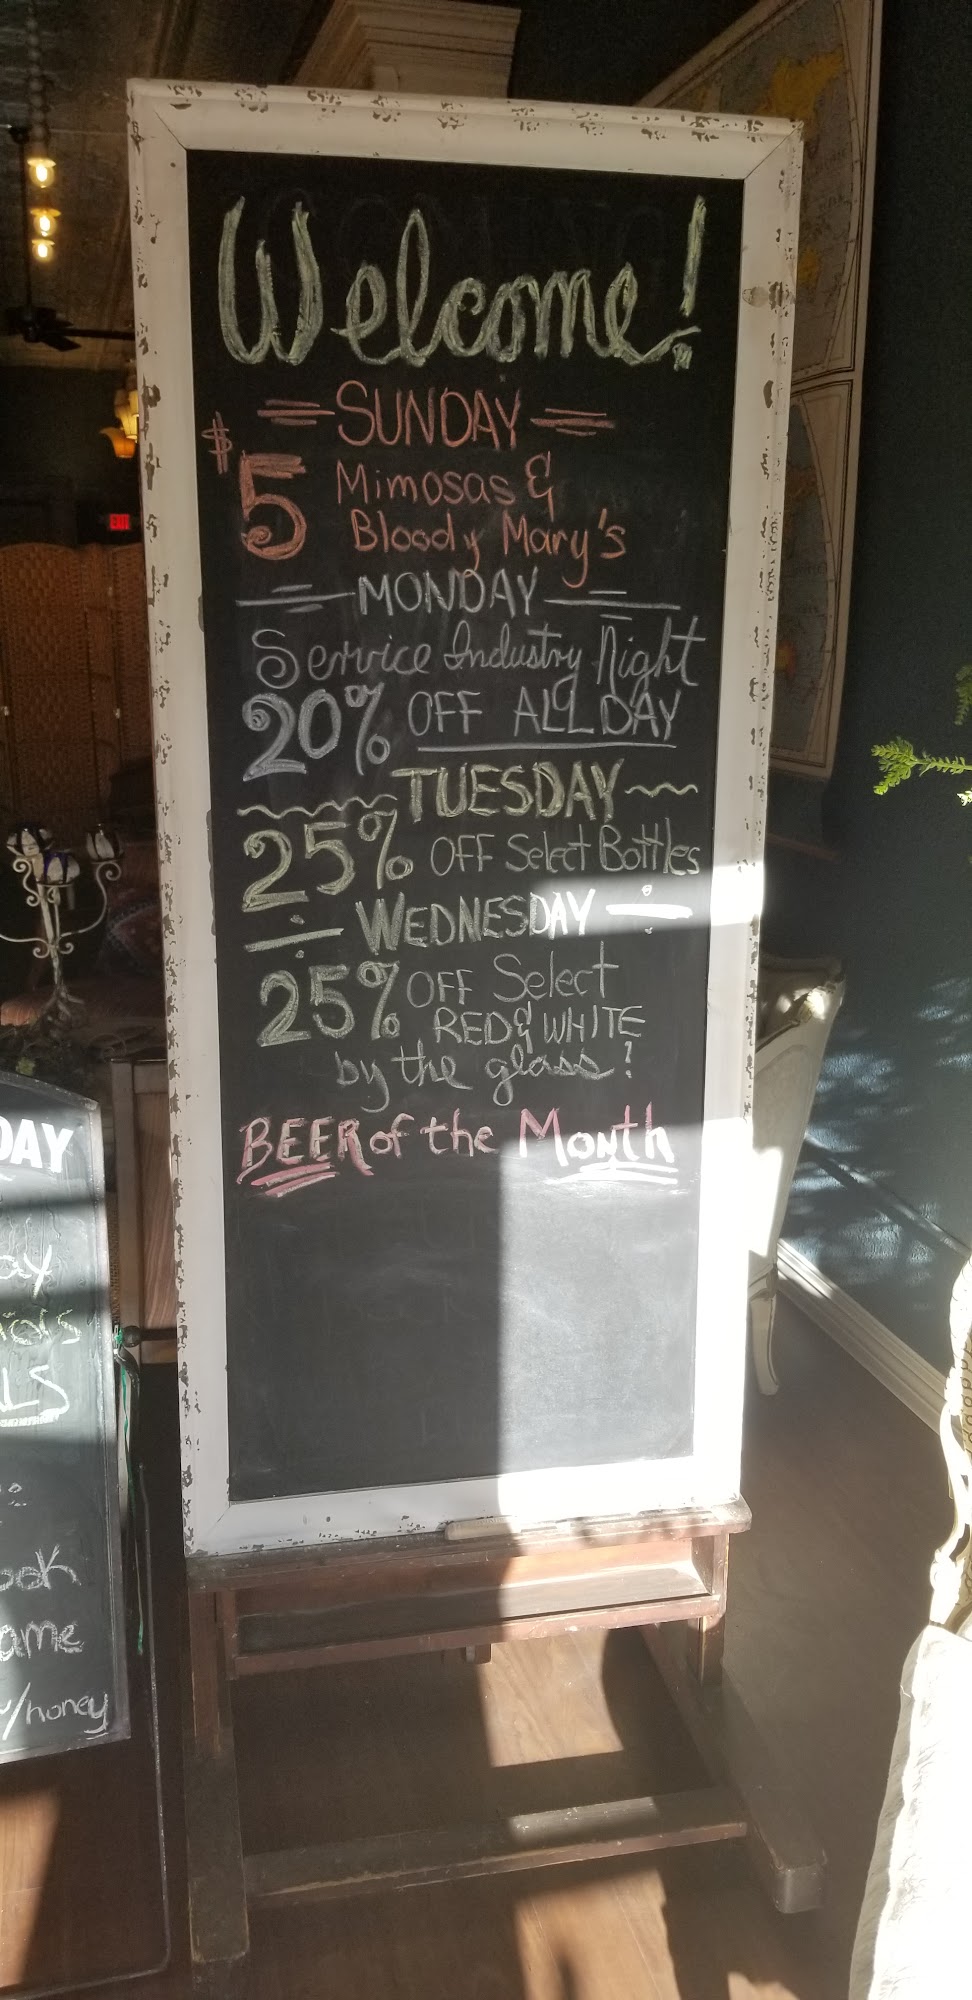 Welcome!
SUNDAY
$5 Mimosas &
Bloody Mary's
MONDAY
Service Industry Night
20% OFF ALL DAY
TUESDAY
25% OFF Select Bottles
WEDNESDAY
25% OFF Select
RED & WHITE
by the glass!
BEER of the Month
EXIT
DAY
ay
ials
LS
ook
ame
w/honey